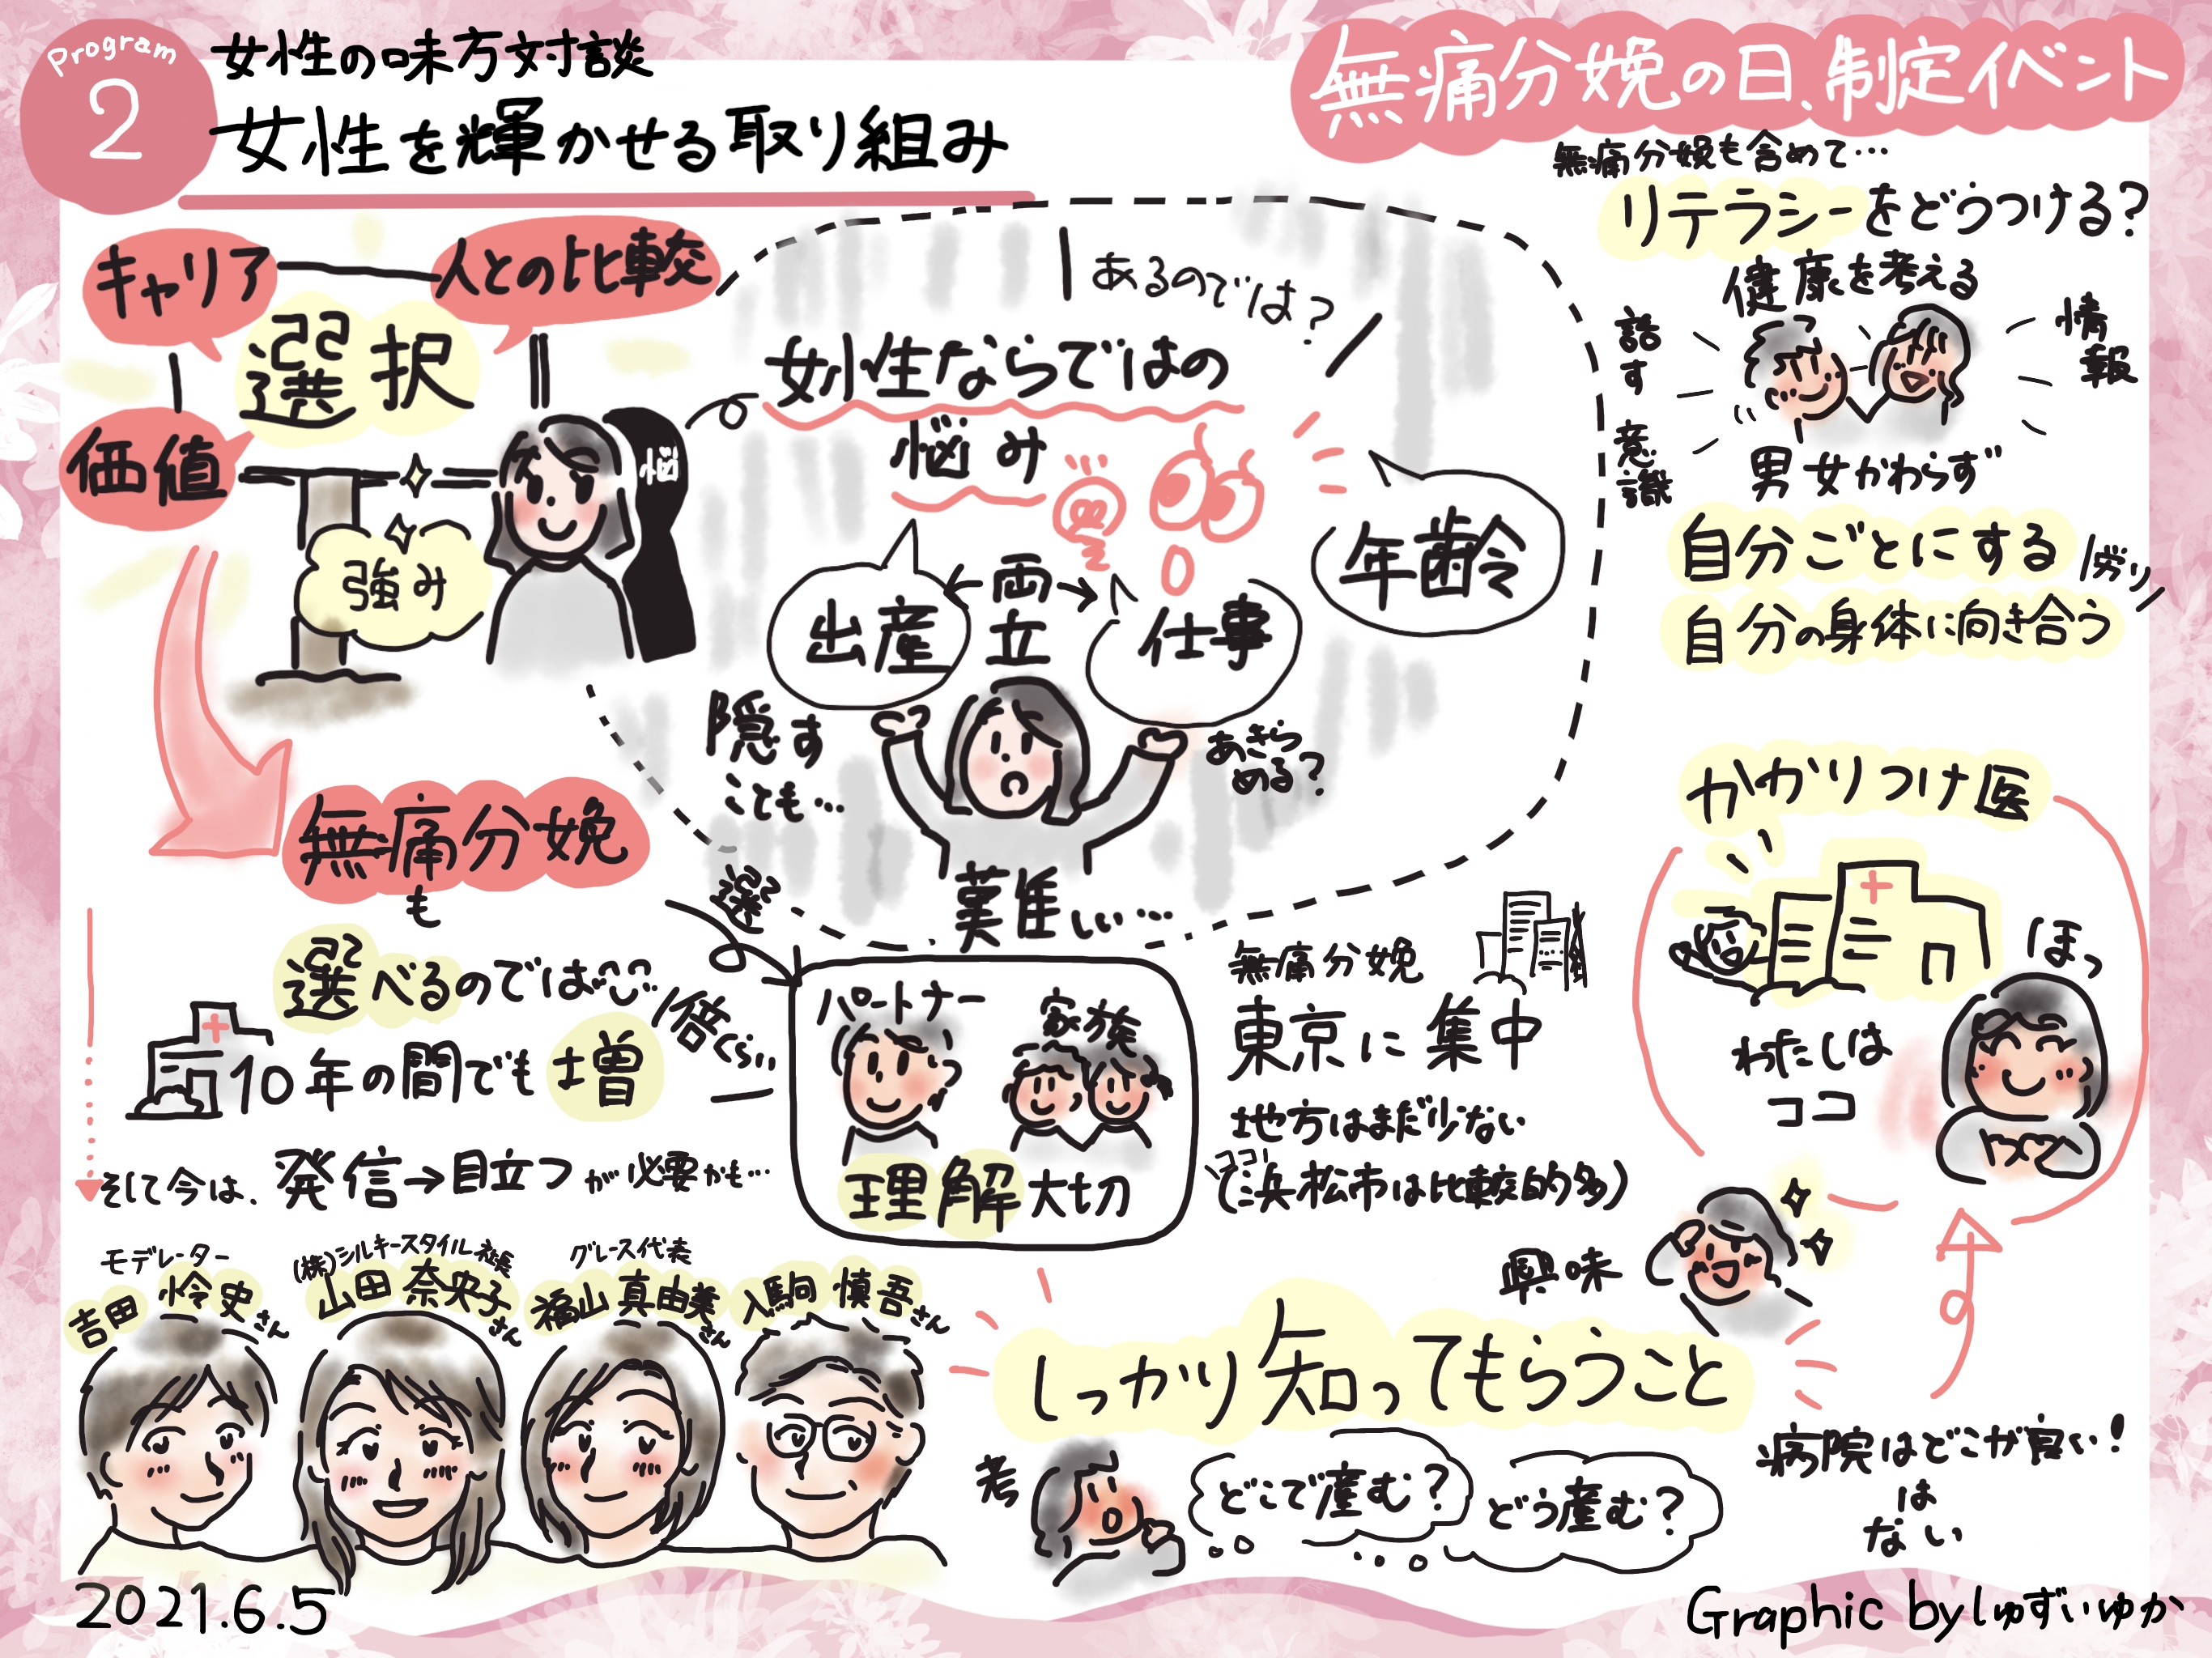 Program
2
女性の味方対談
女性を輝かせる取り組み
無痛分娩の日、制定イベント
キャリア
人との比較
選択
価値
強み
悩
あるのでは?
女性ならではの
悩み
出産
両立
仕事
年齢
隠す
ことも…
あきら
める?
難しい…
無痛分娩
も
選べるのでは
10年の間でも増
倍くらい
そして今は、発信→目立つが必要かも…
選
パートナー
家族
理解大切
無痛分娩
東京に集中
地方はまだ少ない
ココ!
(浜松市は比較的多)
無痛分娩も含めて…
リテラシーをどうつける?
健康を考える
話す
情報
意識
男女かわらず
自分ごとにする
労り
自分の身体に向き合う
かかりつけ医
ほっ
わたしは
ココ
興味
しっかり知ってもらうこと
考
どこで産む?
どう産む?
病院はどこが良い!
は
ない
モデレーター
吉田怜史さん
(株)シルキースタイル社長
山田奈央子さん
グレース代表
福山真由美さん
入駒慎吾さん
2021.6.5
Graphic byしゅずいゆか